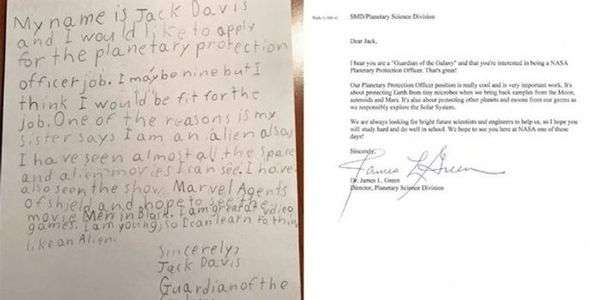 My name is Jack Davis
and I would like to apply
for the planetary protection
officer job. I may be nine but I
think I would be fit for the
job. One of the reasons is my
sister says I am an alien also
I have seen almost all the space
and alien movies I can see. I have
also seen the show Marvel Agents
of Shield and hope to see the
movie Men in Black. I am great at video
games. I am young, so I can learn to think
like an Alien.
Sincerely,
Jack Davis
Guardian of the
SMD/Planetary Science Division
Dear Jack,
I hear you are a "Guardian of the Galaxy" and that you're interested in being a NASA
Planetary Protection Officer. That's great!
Our Planetary Protection Officer position is really cool and is very important work. It's
about protecting Earth from tiny microbes when we bring back samples from the Moon,
asteroids and Mars. It's also about protecting other planets and moons from our germs as
we responsibly explore the Solar System.
We are always looking for bright future scientists and engineers to help us, so I hope you
will study hard and do well in school. We hope to see you here at NASA one of these
days!
Sincerely,
James L Green
Dr. James L. Green
Director, Planetary Science Division